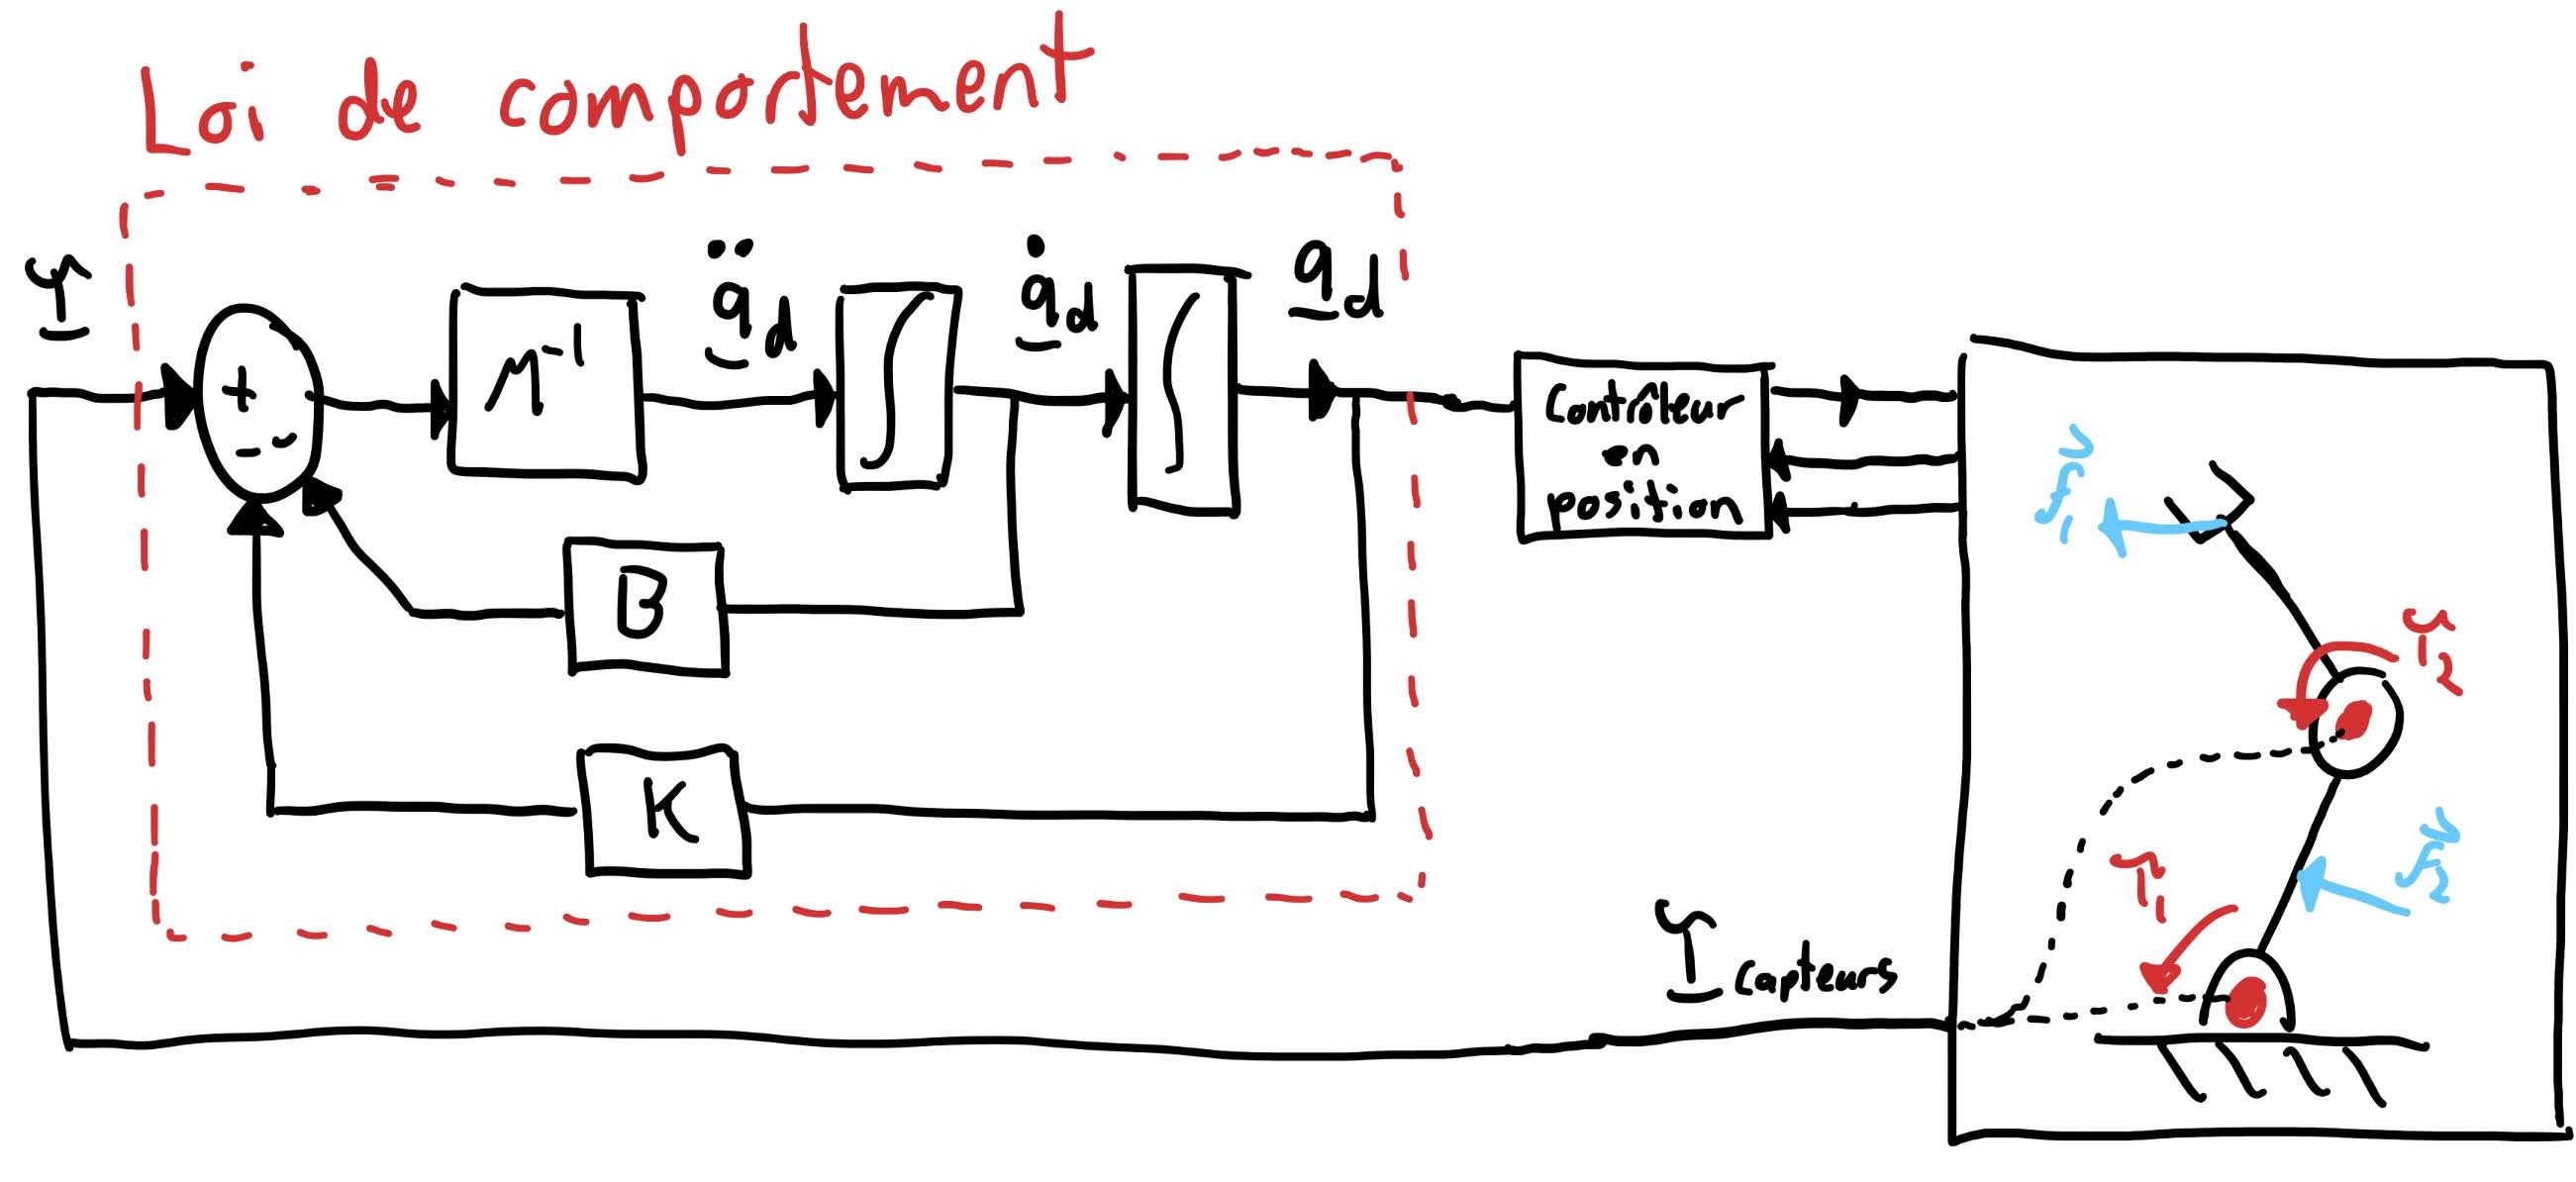 Loi de comportement
τ
+
- -
Λ⁻¹
q̈d
∫
q̇d
∫
qd
B
K
Contrôleur
en
position
f⃗1
τ2
f⃗2
τ1
τ capteurs